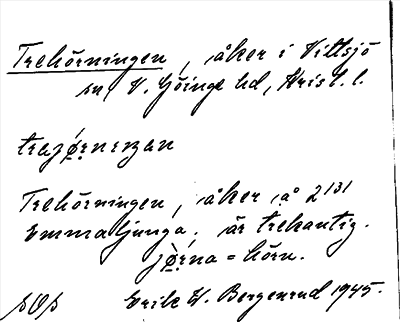 Trehörningen, åker i Vittsjö
sn, V. Göinge hd, Krist. l.
Trehörningen, åker å 2¹³¹
Emmaljunga. är trekantig.
jö̀rna = hörn.
Erik W. Bergenrud 1945.